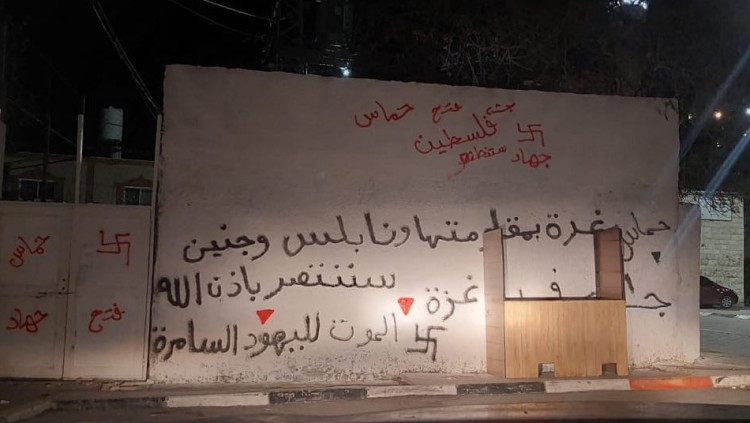 فتح حماس
فلسطين
جهاد ستنتصر
حماس غزة متها ونابلس وجنين
غزة ستنتصر باذن الله
الموت لليهود السامرة
حماس
جهاد فتح